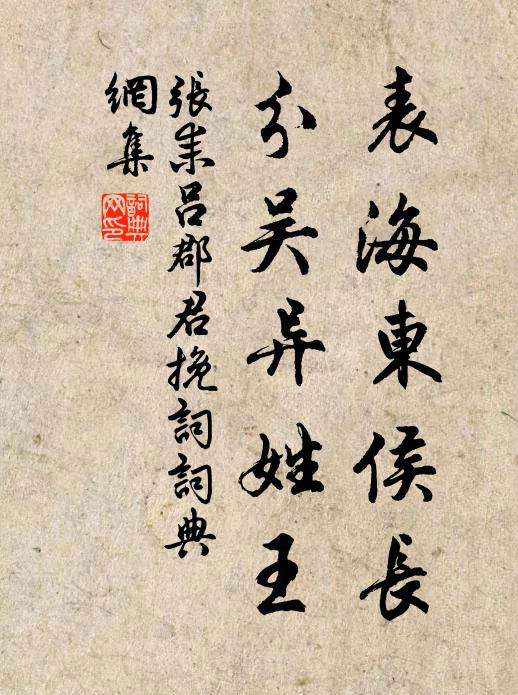 表海東侯長
分吴异姓王
張耒吕郡君挽詞詞典
網集
詞典網印